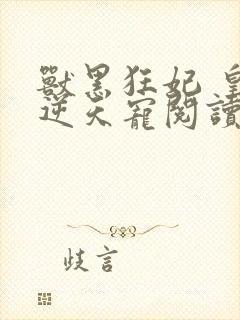 獸黑狂妃 皇
逆天寵閱讀
歧言